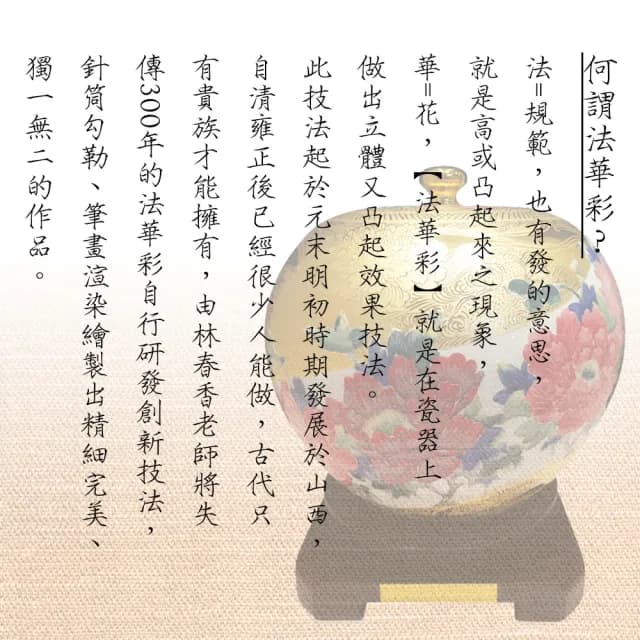 何謂法華彩?
法=規範，也有發的意思，
就是高或凸起來之現象，
華=花，【法華彩】就是在瓷器上
做出立體又凸起效果技法。
此技法起於元末明初時期發展於山西，
自清雍正後已經很少人能做，古代只
有貴族才能擁有，由林春香老師將失
傳300年的法華彩自行研發創新技法，
針筒勾勒、筆畫渲染繪製出精細完美、
獨一無二的作品。